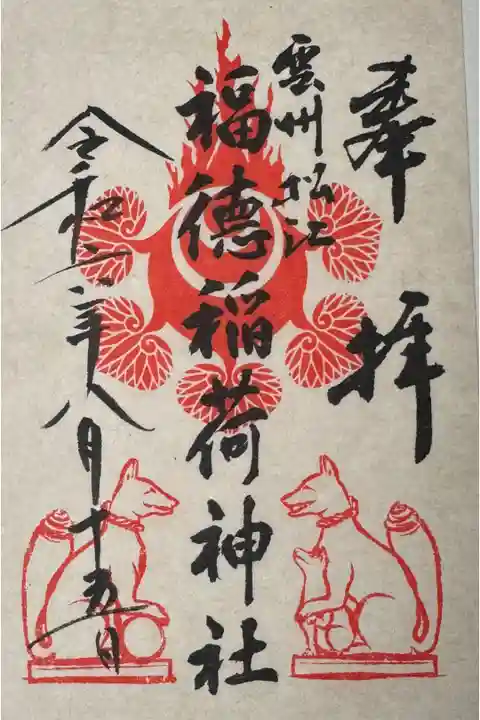 奉拝
雲州松江
福徳稲荷神社
令和二年八月十五日